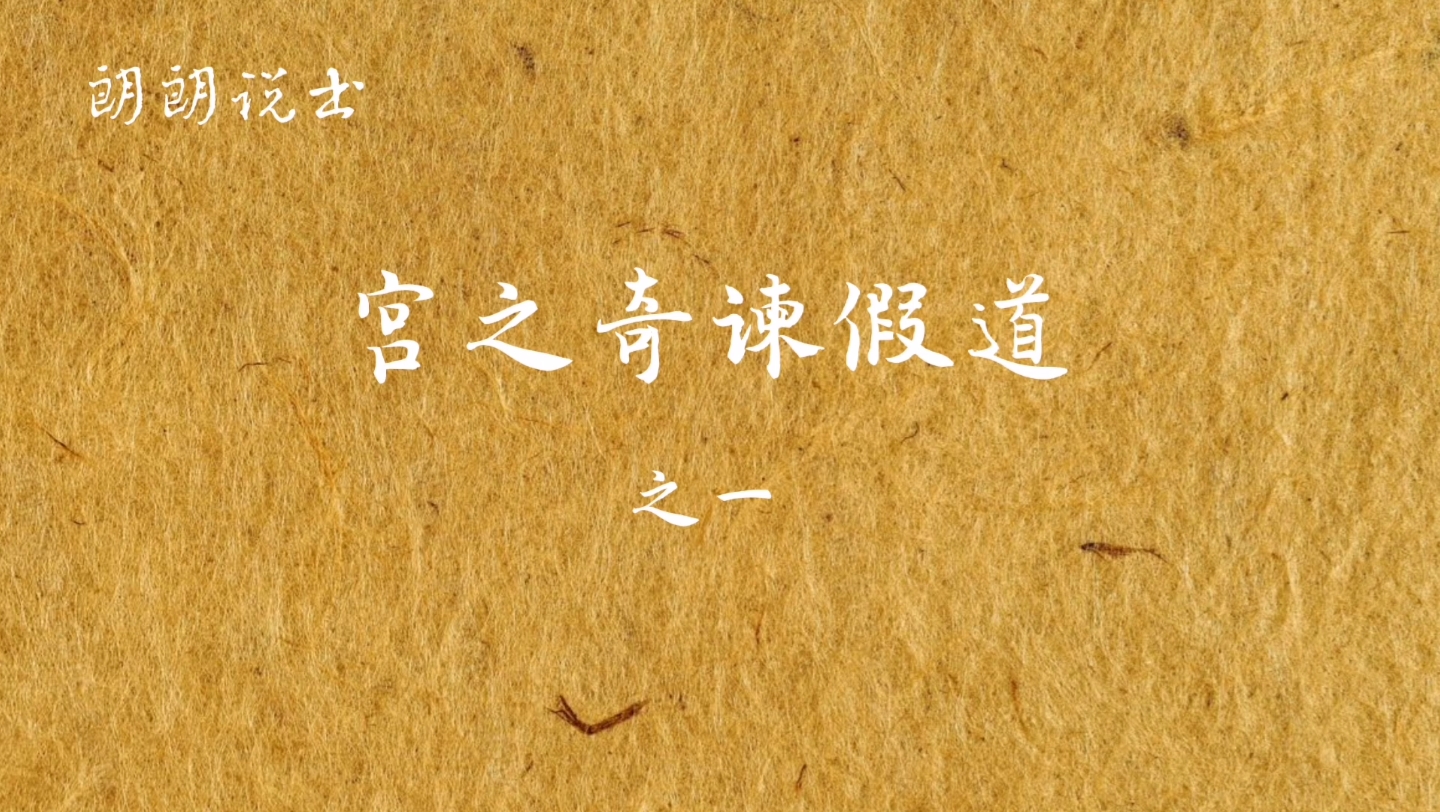 朗朗说书
宫之奇谏假道
之一